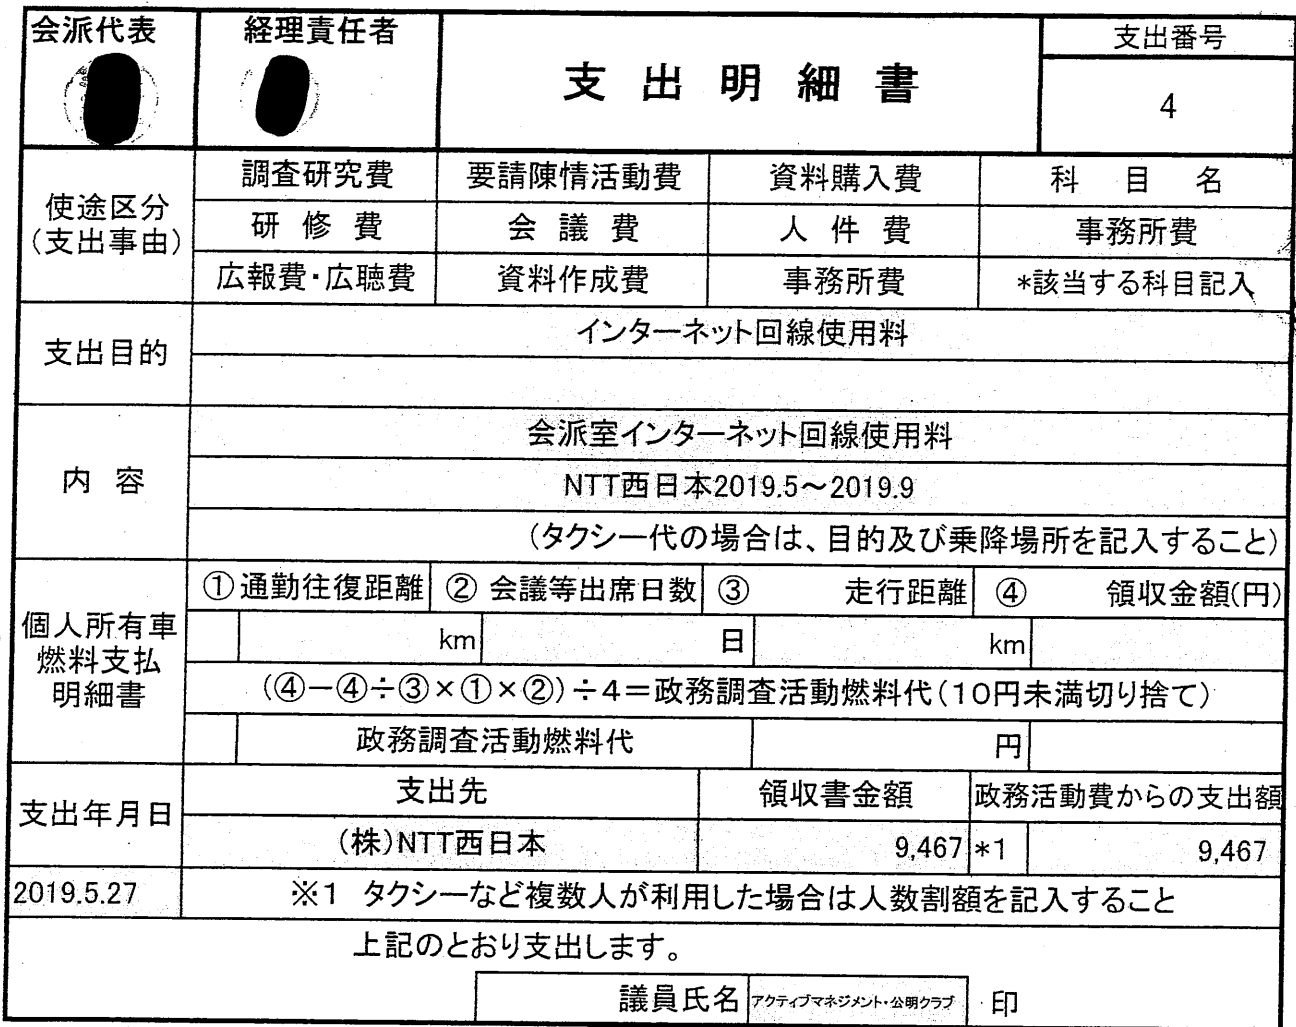 会派代表 経理責任者 支出明細書 支出番号
4
使途区分
(支出事由)
調査研究費 要請陳情活動費 資料購入費 科目名
研修費 会議費 人件費 事務所費
広報費・広聴費 資料作成費 事務所費 *該当する科目記入
支出目的 インターネット回線使用料
内容
会派室インターネット回線使用料
NTT西日本2019.5～2019.9
(タクシー代の場合は、目的及び乗降場所を記入すること)
個人所有車
燃料支払
明細書
①通勤往復距離 ② 会議等出席日数 ③ 走行距離 ④ 領収金額(円)
km 日 km
(④－④÷③×①×②)÷4＝政務調査活動燃料代(10円未満切り捨て)
政務調査活動燃料代 円
支出年月日 支出先 領収書金額 政務活動費からの支出額
(株)NTT西日本 9,467 *1 9,467
2019.5.27 ※1 タクシーなど複数人が利用した場合は人数割額を記入すること
上記のとおり支出します。
議員氏名 アクティブマネジメント・公明クラブ 印